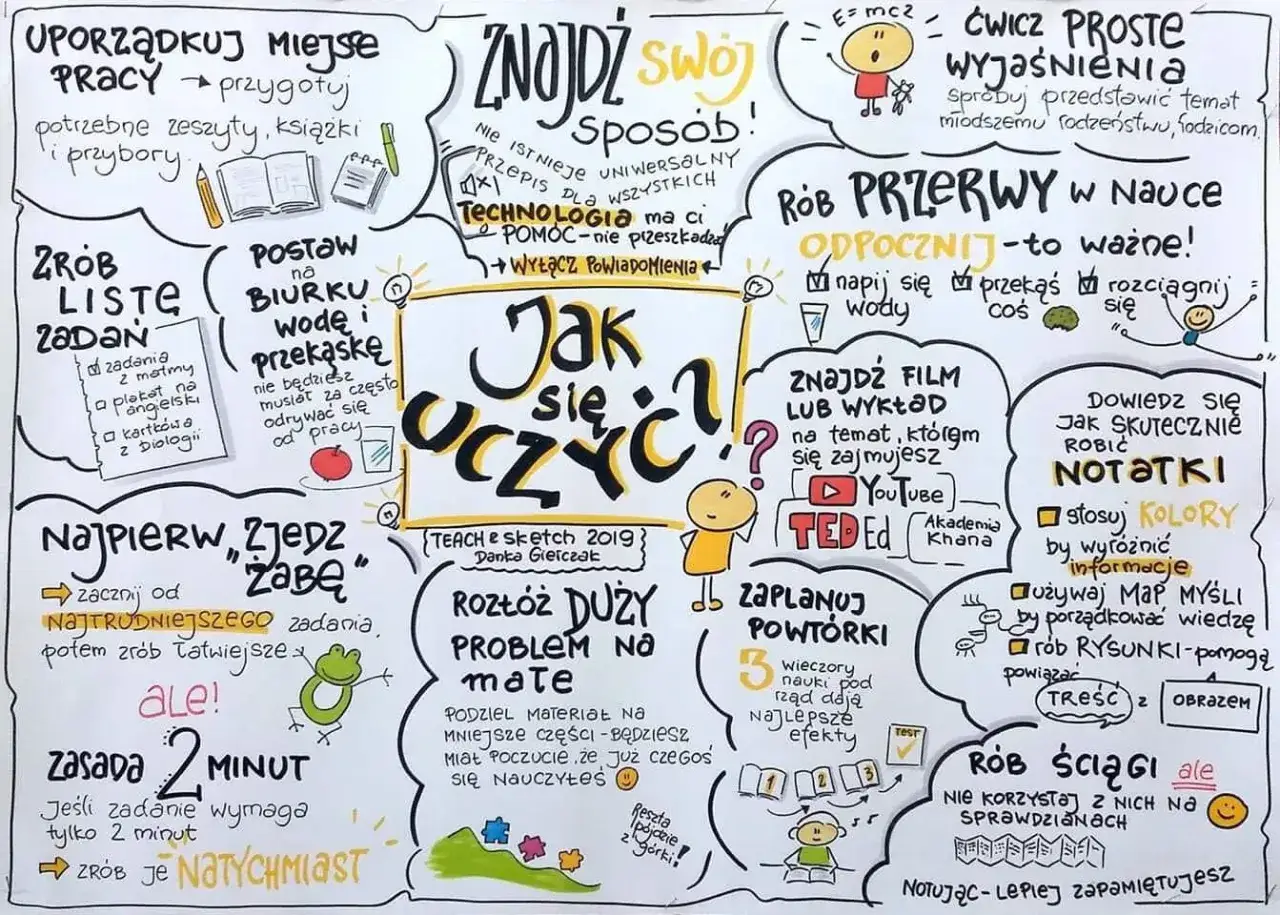 UPORZĄDKUJ MIEJSCE
PRACY → przygotuj
potrzebne zeszyty, książki
i przybory.
ZNAJDŹ SWÓJ
SPOSÓB!
NIE ISTNIEJE UNIWERSALNY
PRZEPIS DLA WSZYSTKICH
TECHNOLOGIA ma ci
POMÓC - nie przeszkadzać
→ WYŁĄCZ POWIADOMIENIA ←
E=mc2
ĆWICZ PROSTE
WYJAŚNIENIA
spróbuj przedstawić temat
młodszemu rodzeństwu, rodzicom.
RÓB PRZERWY w NAUCE
ODPOCZNIJ - to ważne!
napij się
wody
przekąś
coś
rozciągnij
się
ZRÓB
LISTĘ
ZADAŃ
zadania
z matmy
plakat na
angielski
kartkówka
z biologii
POSTAW
na
BIURKU
wodę i
przekąskę
nie będziesz
musiał za często
odrywać się
od pracy
Jak
się
UCZYĆ?
TEACH & SKETCH 2019
Danka Gierczak
ZNAJDŹ FILM
LUB WYKŁAD
na temat, którym
się zajmujesz
YouTube
TED Ed
Akademia
Khana
DOWIEDZ SIĘ
JAK SKUTECZNIE
ROBIĆ
NOTATKI
stosuj KOLORY
by wyróżnić
informacje
używaj MAP MYŚLI
by porządkować wiedzę
rób RYSUNKI - pomogą
powiązać
TREŚĆ z OBRAZEM
NAJPIERW „ZJEDZ
ŻABĘ"
zacznij od
NAJTRUDNIEJSZEGO zadania,
potem zrób łatwiejsze
ale!
ZASADA 2 MINUT
Jeśli zadanie wymaga
tylko 2 minut
ZRÓB JE NATYCHMIAST
ROZŁÓŻ DUŻY
PROBLEM NA
małe
PODZIEL MATERIAŁ NA
MNIEJSZE CZĘŚCI - BĘDZIESZ
MIAŁ POCZUCIE, ŻE JUŻ CZEGOŚ
SIĘ NAUCZYŁEŚ
Reszta
pójdzie
z górki!
ZAPLANUJ
POWTÓRKI
3 wieczory
nauki pod
rząd dają
NAJLEPSZE
efekty
TEST
1 2 3
RÓB ŚCIĄGI ale
NIE KORZYSTAJ Z NICH NA
SPRAWDZIANACH
NOTUJĄC - LEPIEJ ZAPAMIĘTUJESZ